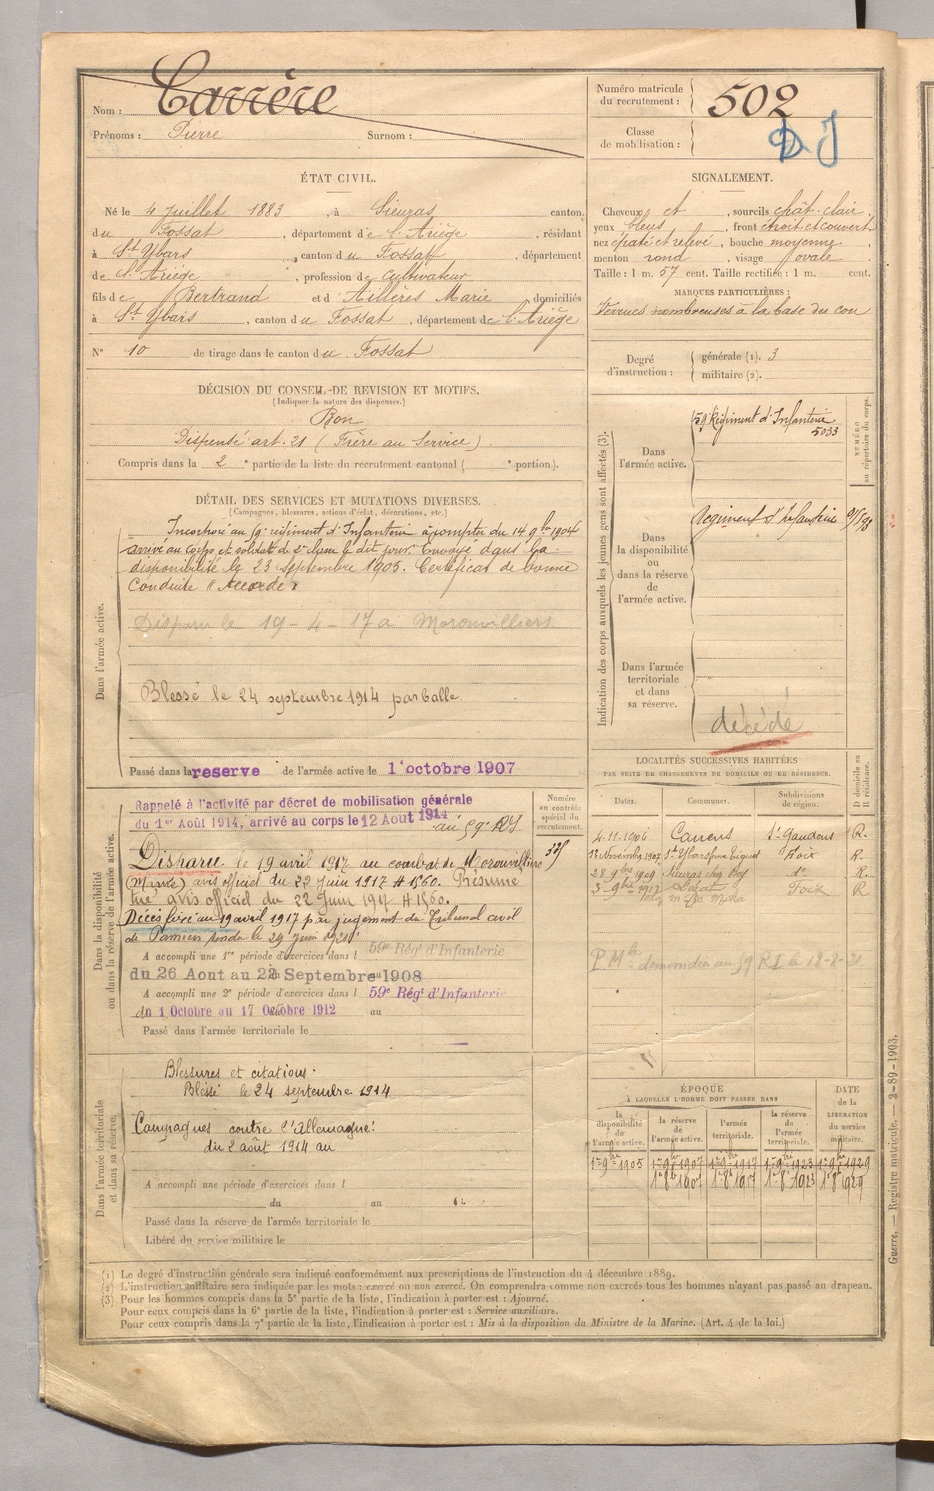 Nom : Carrère
Prénoms : Pierre Surnom :
ÉTAT CIVIL.
Né le 4 Juillet 1883, à Sieuras canton
du Fossat, département de l'Ariège, résidant
à St Ybars, canton du Fossat, département
de l'Ariège, profession de Cultivateur
fils de Bertrand et d'Aillères Marie domiciliés
à St Ybars, canton du Fossat, département de l'Ariège
N° 10 de tirage dans le canton du Fossat
DÉCISION DU CONSEIL DE REVISION ET MOTIFS.
(Indiquer la nature des dispenses.)
Bon
Dispensé art. 21 (Frère au Service)
Compris dans la 2e partie de la liste du recrutement cantonal ( e portion).
DÉTAIL DES SERVICES ET MUTATIONS DIVERSES.
(Campagnes, blessures, actions d'éclat, décorations, etc.)
Dans l'armée active.
Incorporé au 59e régiment d'Infanterie à compter du 14 9bre 1904
arrivé au corps et soldat de 2e classe le dit jour. Envoyé dans la
disponibilité le 23 Septembre 1905. Certificat de bonne
Conduite "Accordé"
Disparu le 19-4-17 à Moronvilliers
Blessé le 24 septembre 1914 par balle
Passé dans la reserve de l'armée active le 1 octobre 1907
Dans la disponibilité
ou dans la réserve de l'armée active.
Rappelé à l'activité par décret de mobilisation générale
du 1er Août 1914, arrivé au corps le 12 Aout 1914 au 59e RI
Disparu le 19 avril 1917 au combat de Moronvilliers
(Marne) avis officiel du 22 juin 1917 # 1560. Présumé
tué avis officiel du 22 Juin 1917 # 1560.
Décès fixé au 19 avril 1917 par jugement du Tribunal civil
de Pamiers rendu le 29 Juin 1921
A accompli une 1re période d'exercices dans l 59e Régt d'Infanterie
du 26 Aout au 22 Septembre 1908
A accompli une 2e période d'exercices dans l 59e Régt d'Infanterie
du 1 Octobre au 17 Octobre 1912 au
Passé dans l'armée territoriale le
Numéro
au contrôle
spécial du
recrutement.
Dans l'armée territoriale
et dans sa réserve.
Blessures et citations.
Blessé le 24 septembre 1914
Campagnes contre l'Allemagne:
du 2 août 1914 au
A accompli une période d'exercices dans l
du au
Passé dans la réserve de l'armée territoriale le
Libéré du service militaire le
Numéro matricule
du recrutement : 502
Classe
de mobilisation :
DJ
SIGNALEMENT.
Cheveux et, sourcils chât-clair,
yeux bleus, front étroit et couvert
nez épaté et relevé, bouche moyenne
menton rond, visage ovale
Taille : 1 m. 57 cent. Taille rectifiée : 1 m. cent.
MARQUES PARTICULIÈRES :
Verrues nombreuses à la base du cou
Degré
d'instruction :
générale (1). 3
militaire (2).
Indication des corps auxquels les jeunes gens sont affectés (3).
NUMÉRO
au répertoire du corps.
Dans
l'armée active.
59 Régiment d'Infanterie
5033
Dans
la disponibilité
ou
dans la réserve
de
l'armée active.
Régiment d'Infanterie
Dans l'armée
territoriale
et dans
sa réserve.
décédé
LOCALITÉS SUCCESSIVES HABITÉES
PAR SUITE DE CHANGEMENTS DE DOMICILE OU DE RÉSIDENCE.
Dates. Communes. Subdivisions
de région. D domicile ou
R résidence.
4-11-1906 St Gaudens R.
Novembre 1907 St Ybars Foix R.
28 9bre 1909 Sieuras chez do R.
3-9bre 1912 Foix R
demandée au 59 RI le 18-8-21
ÉPOQUE
À LAQUELLE L'HOMME DOIT PASSER DANS
DATE
de la
LIBÉRATION
du service
militaire.
la
disponibilité
de
l'armée active.
la réserve
de
l'armée active.
l'armée
territoriale.
la réserve
de
l'armée
territoriale.
1er 9bre 1905 1er 9bre 1907 1er 9bre 1917 1er 9bre 1923 1er 9bre 1929
1er 8bre 1907 1er 8bre 1917 1er 8bre 1923 1er 8bre 1929
Guerre. — Registre matricule. — 2-89-1903.
(1) Le degré d'instruction générale sera indiqué conformément aux prescriptions de l'instruction du 4 décembre 1889.
(2) L'instruction militaire sera indiquée par les mots : exercé ou non exercé. On comprendra comme non exercés tous les hommes n'ayant pas passé au drapeau.
(3) Pour les hommes compris dans la 5e partie de la liste, l'indication à porter est : Ajourné.
Pour ceux compris dans la 6e partie de la liste, l'indication à porter est : Service auxiliaire.
Pour ceux compris dans la 7e partie de la liste, l'indication à porter est : Mis à la disposition du Ministre de la Marine. (Art. 4 de la loi.)